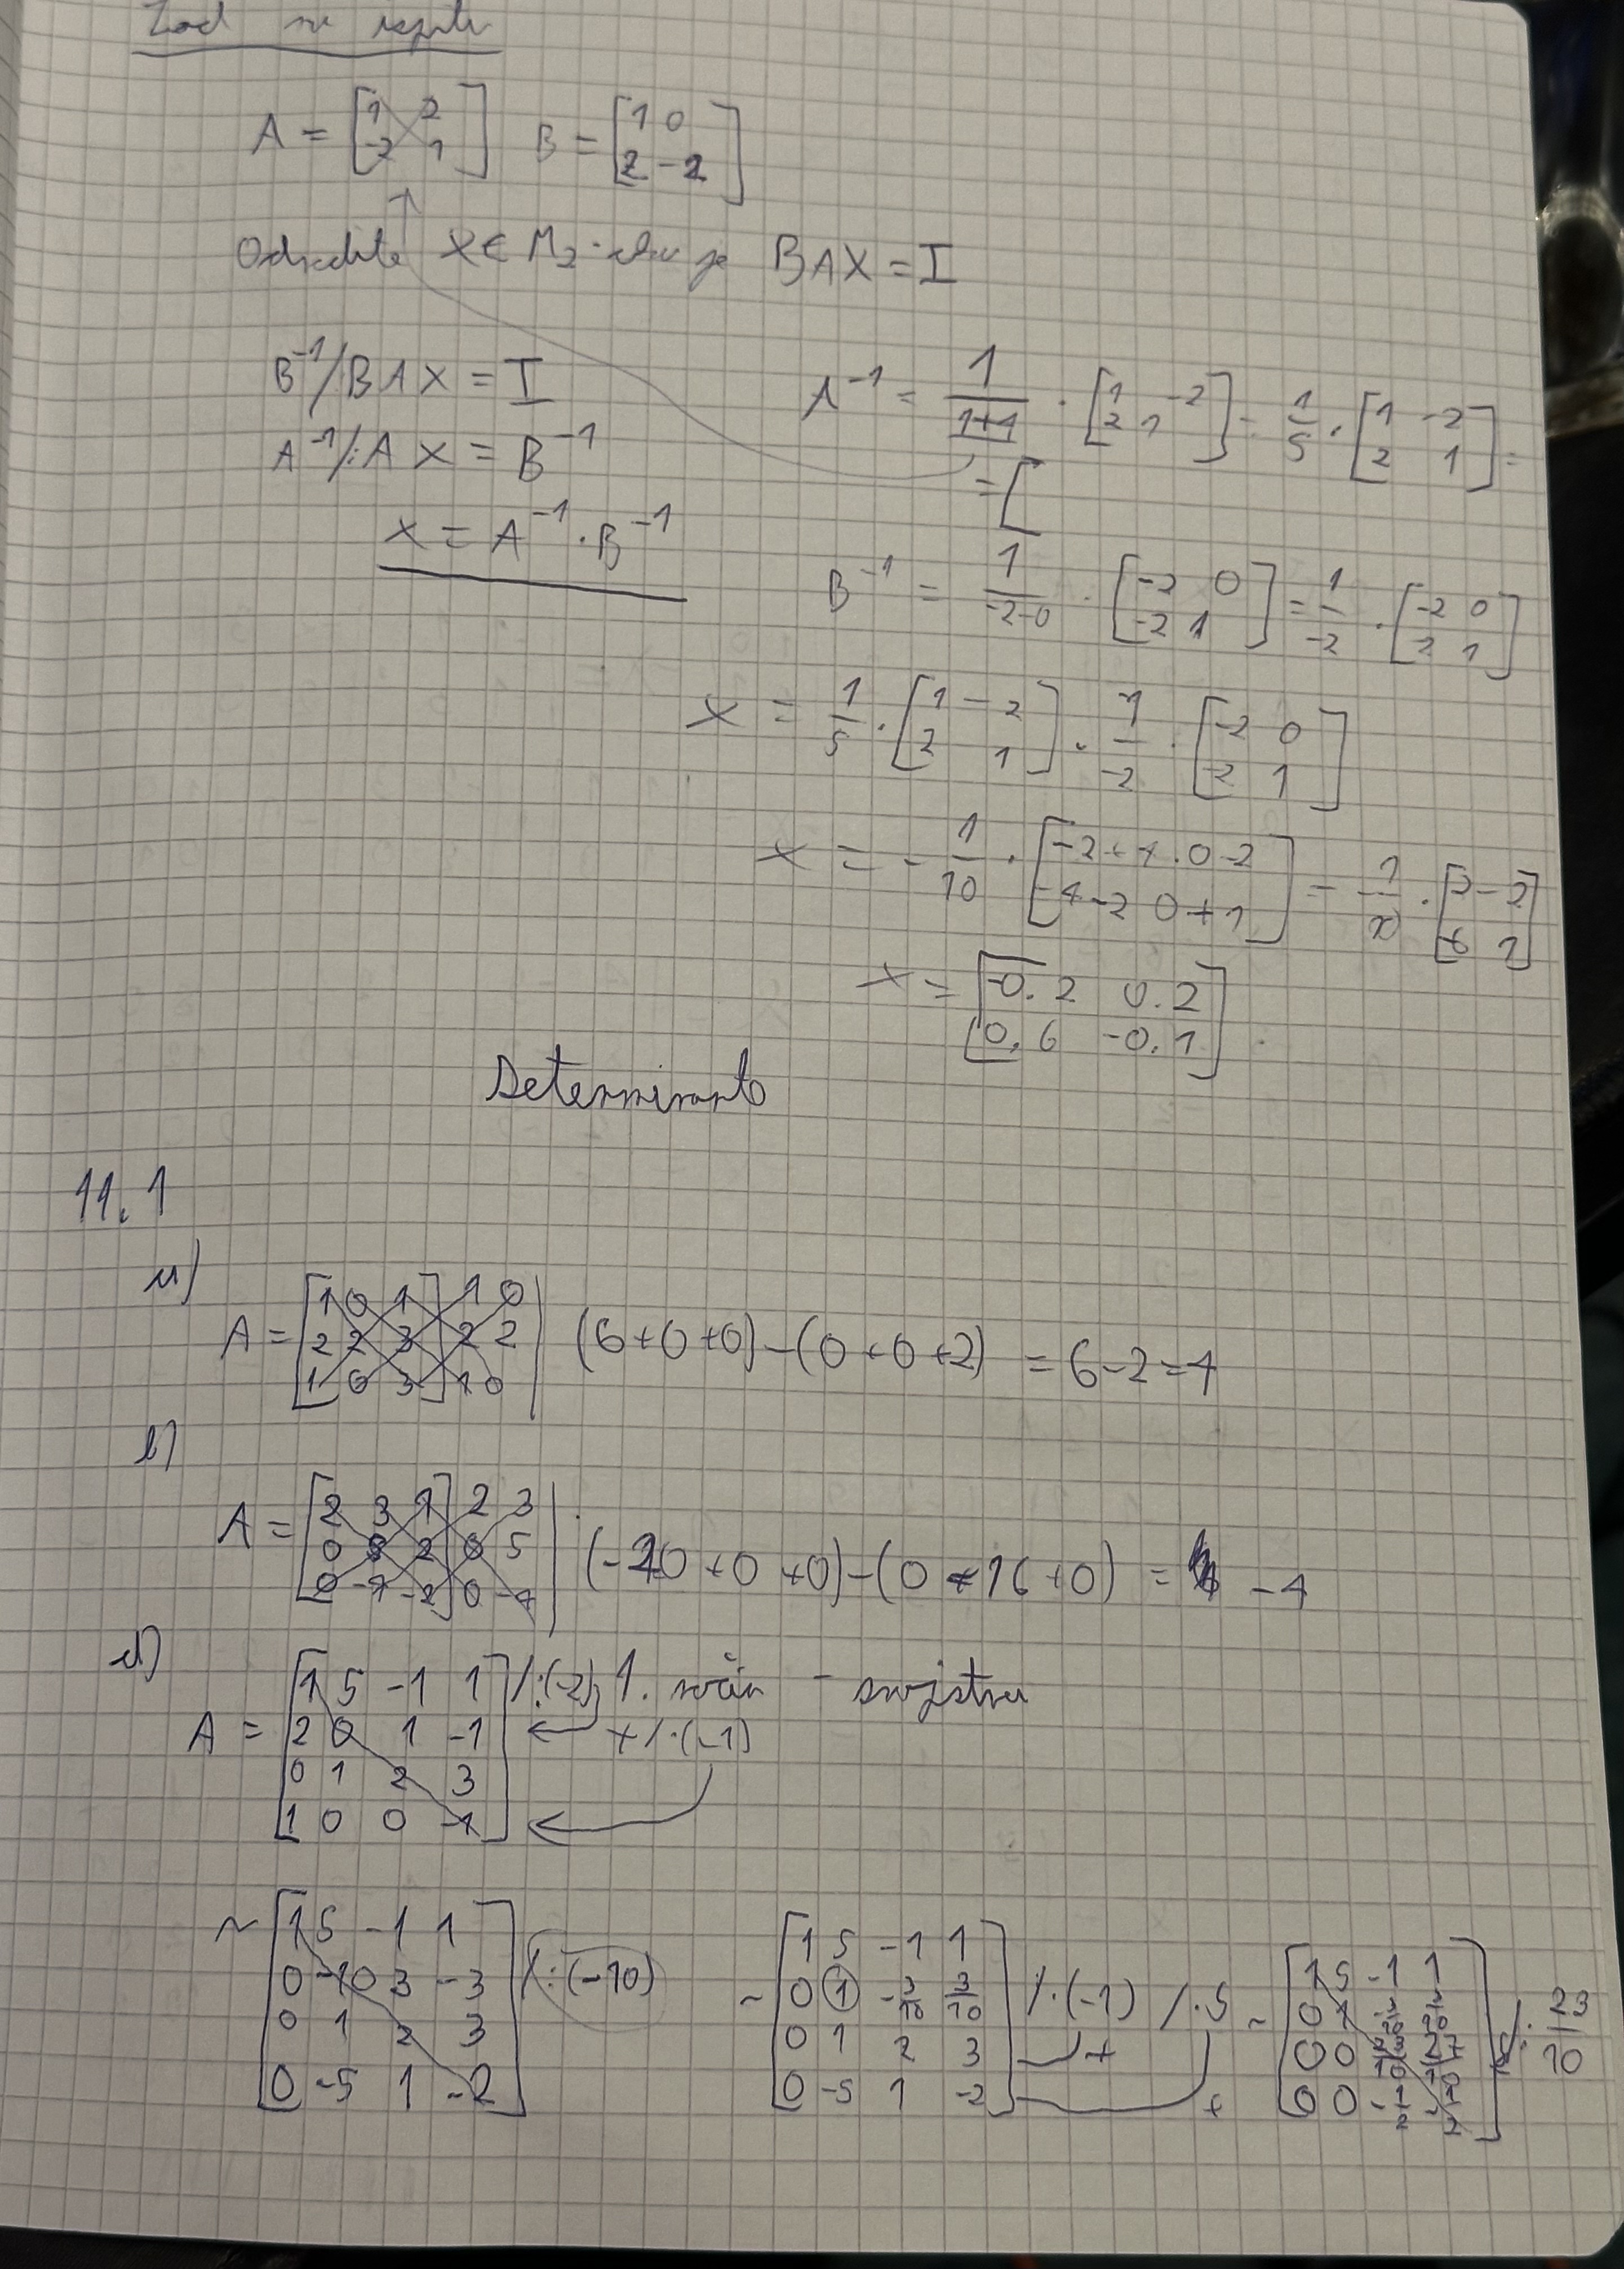 Zad na ispitu
A = [1 2; -2 1] B = [1 0; 2 -2]
Odredite X ∈ M₂ ako je BAX = I
B⁻¹/BAX = I
A⁻¹/·AX = B⁻¹
X = A⁻¹·B⁻¹
A⁻¹ = 1/(1+4) · [1 -2; 2 1] = 1/5 · [1 -2; 2 1] =
= [
B⁻¹ = 1/(-2-0) · [-2 0; -2 1] = 1/-2 · [-2 0; -2 1]
X = 1/5 · [1 -2; 2 1] · 1/-2 · [-2 0; -2 1]
X = -1/10 · [-2+4 0-2; -4-2 0+1] = -1/10 · [2 -2; -6 1]
X = [-0.2 0.2; 0.6 -0.1]
Determinante
11.1
a)
A = [1 0 1; 2 2 3; 1 0 3] 1 0; 2 2; 1 0 | (6+0+0)-(0+0+2) = 6-2=4
b)
A = [2 3 1; 0 5 2; 0 -4 -2] 2 3; 0 5; 0 -4 | (-20+0+0)-(0-16+0) = -4
d)
A = [1 5 -1 1; 2 0 1 -1; 0 1 2 3; 1 0 0 -1] /·(-2) 1. način - svojstva
+ /·(-1)
~ [1 5 -1 1; 0 -10 3 -3; 0 1 2 3; 0 -5 1 -2] /:(-10)
~ [1 5 -1 1; 0 1 -3/10 3/10; 0 1 2 3; 0 -5 1 -2] /·(-1) + /·5 +
~ [1 5 -1 1; 0 1 -3/10 3/10; 0 0 23/10 27/10; 0 0 -1/2 -1/2] /: 23/10